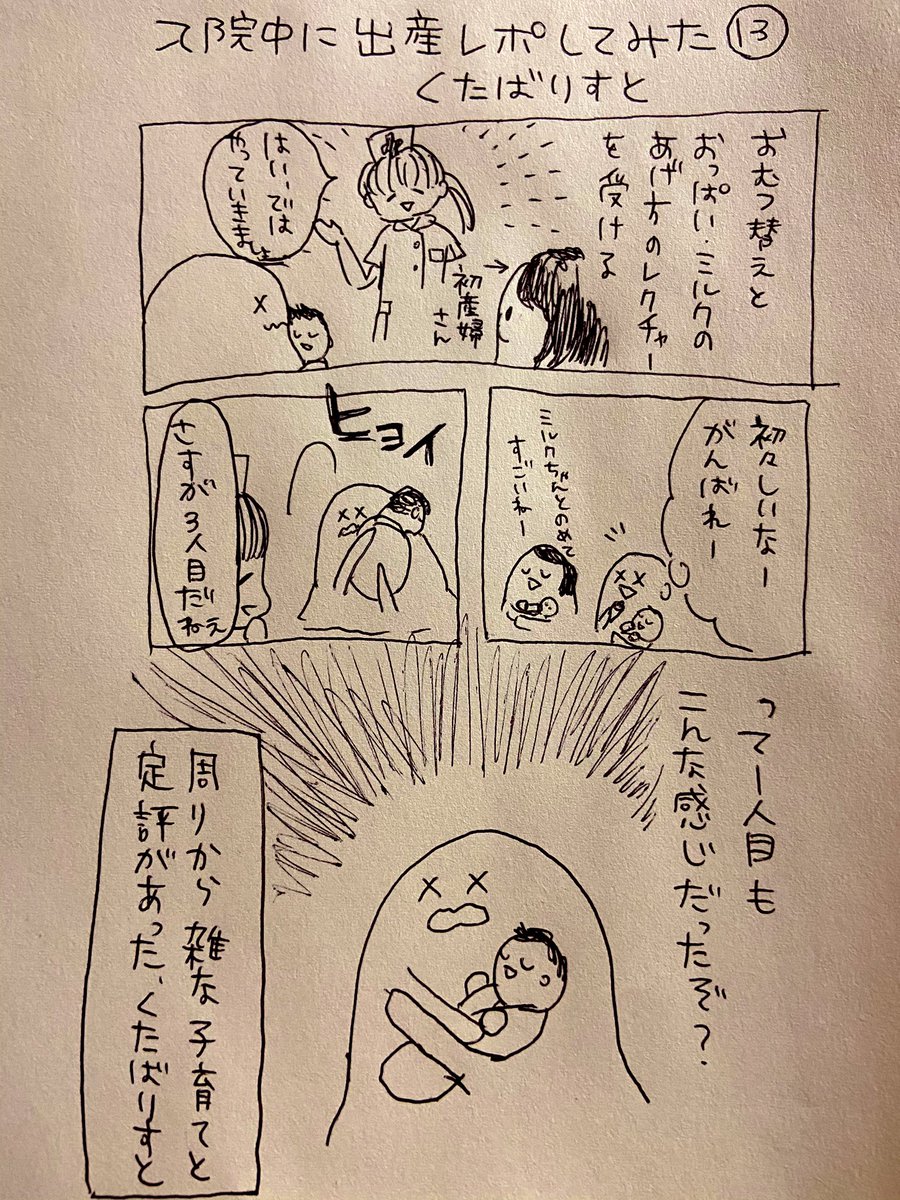 入院中に出産レポしてみた⑬
くたばりすと
おむつ替えと
おっぱい・ミルクの
あげ方のレクチャー
を受ける
初産婦
さん
→
はい、では
やっていきましょ
初々しいなー
がんばれー
ミルクちゃんとのめて
すごいねー
ヒョイ
さすが3人目だ
ねぇ
って一人目も
こんな感じだったぞ?
周りから雑な子育てと
定評があった、くたばりすと